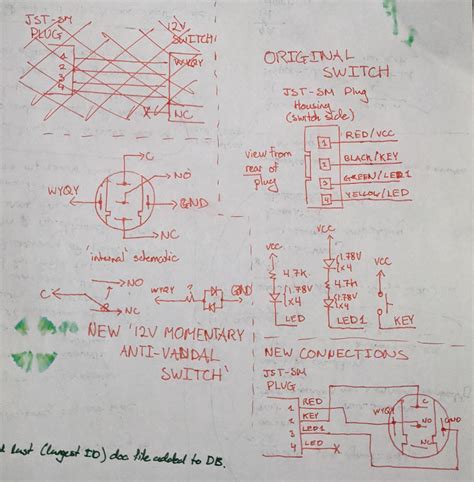 JST-SM
PLUG
12V
SWITCH
1
2
3
4
WYQY
NC
C
NO
WYQY
GND
NC
'internal' schematic
NO
C
NC
GND
NEW '12V MOMENTARY
ANTI-VANDAL
SWITCH'
ORIGINAL
SWITCH
JST-SM Plug
Housing
(switch side)
view from
rear of
plug
1 RED/VCC
BLACK/KEY
GREEN/LED1
4 YELLOW/LED
VCC
4.7K
1.78V
x4
LED
VCC
1.78V
x4
4.7K
1.78V
x4
LED1
VCC
KEY
NEW CONNECTIONS
JST-SM
PLUG
RED
KEY
3 LED1
4 LED
WYQY
C
NO
GND
NC
last (largest ID) doc file added to DB.